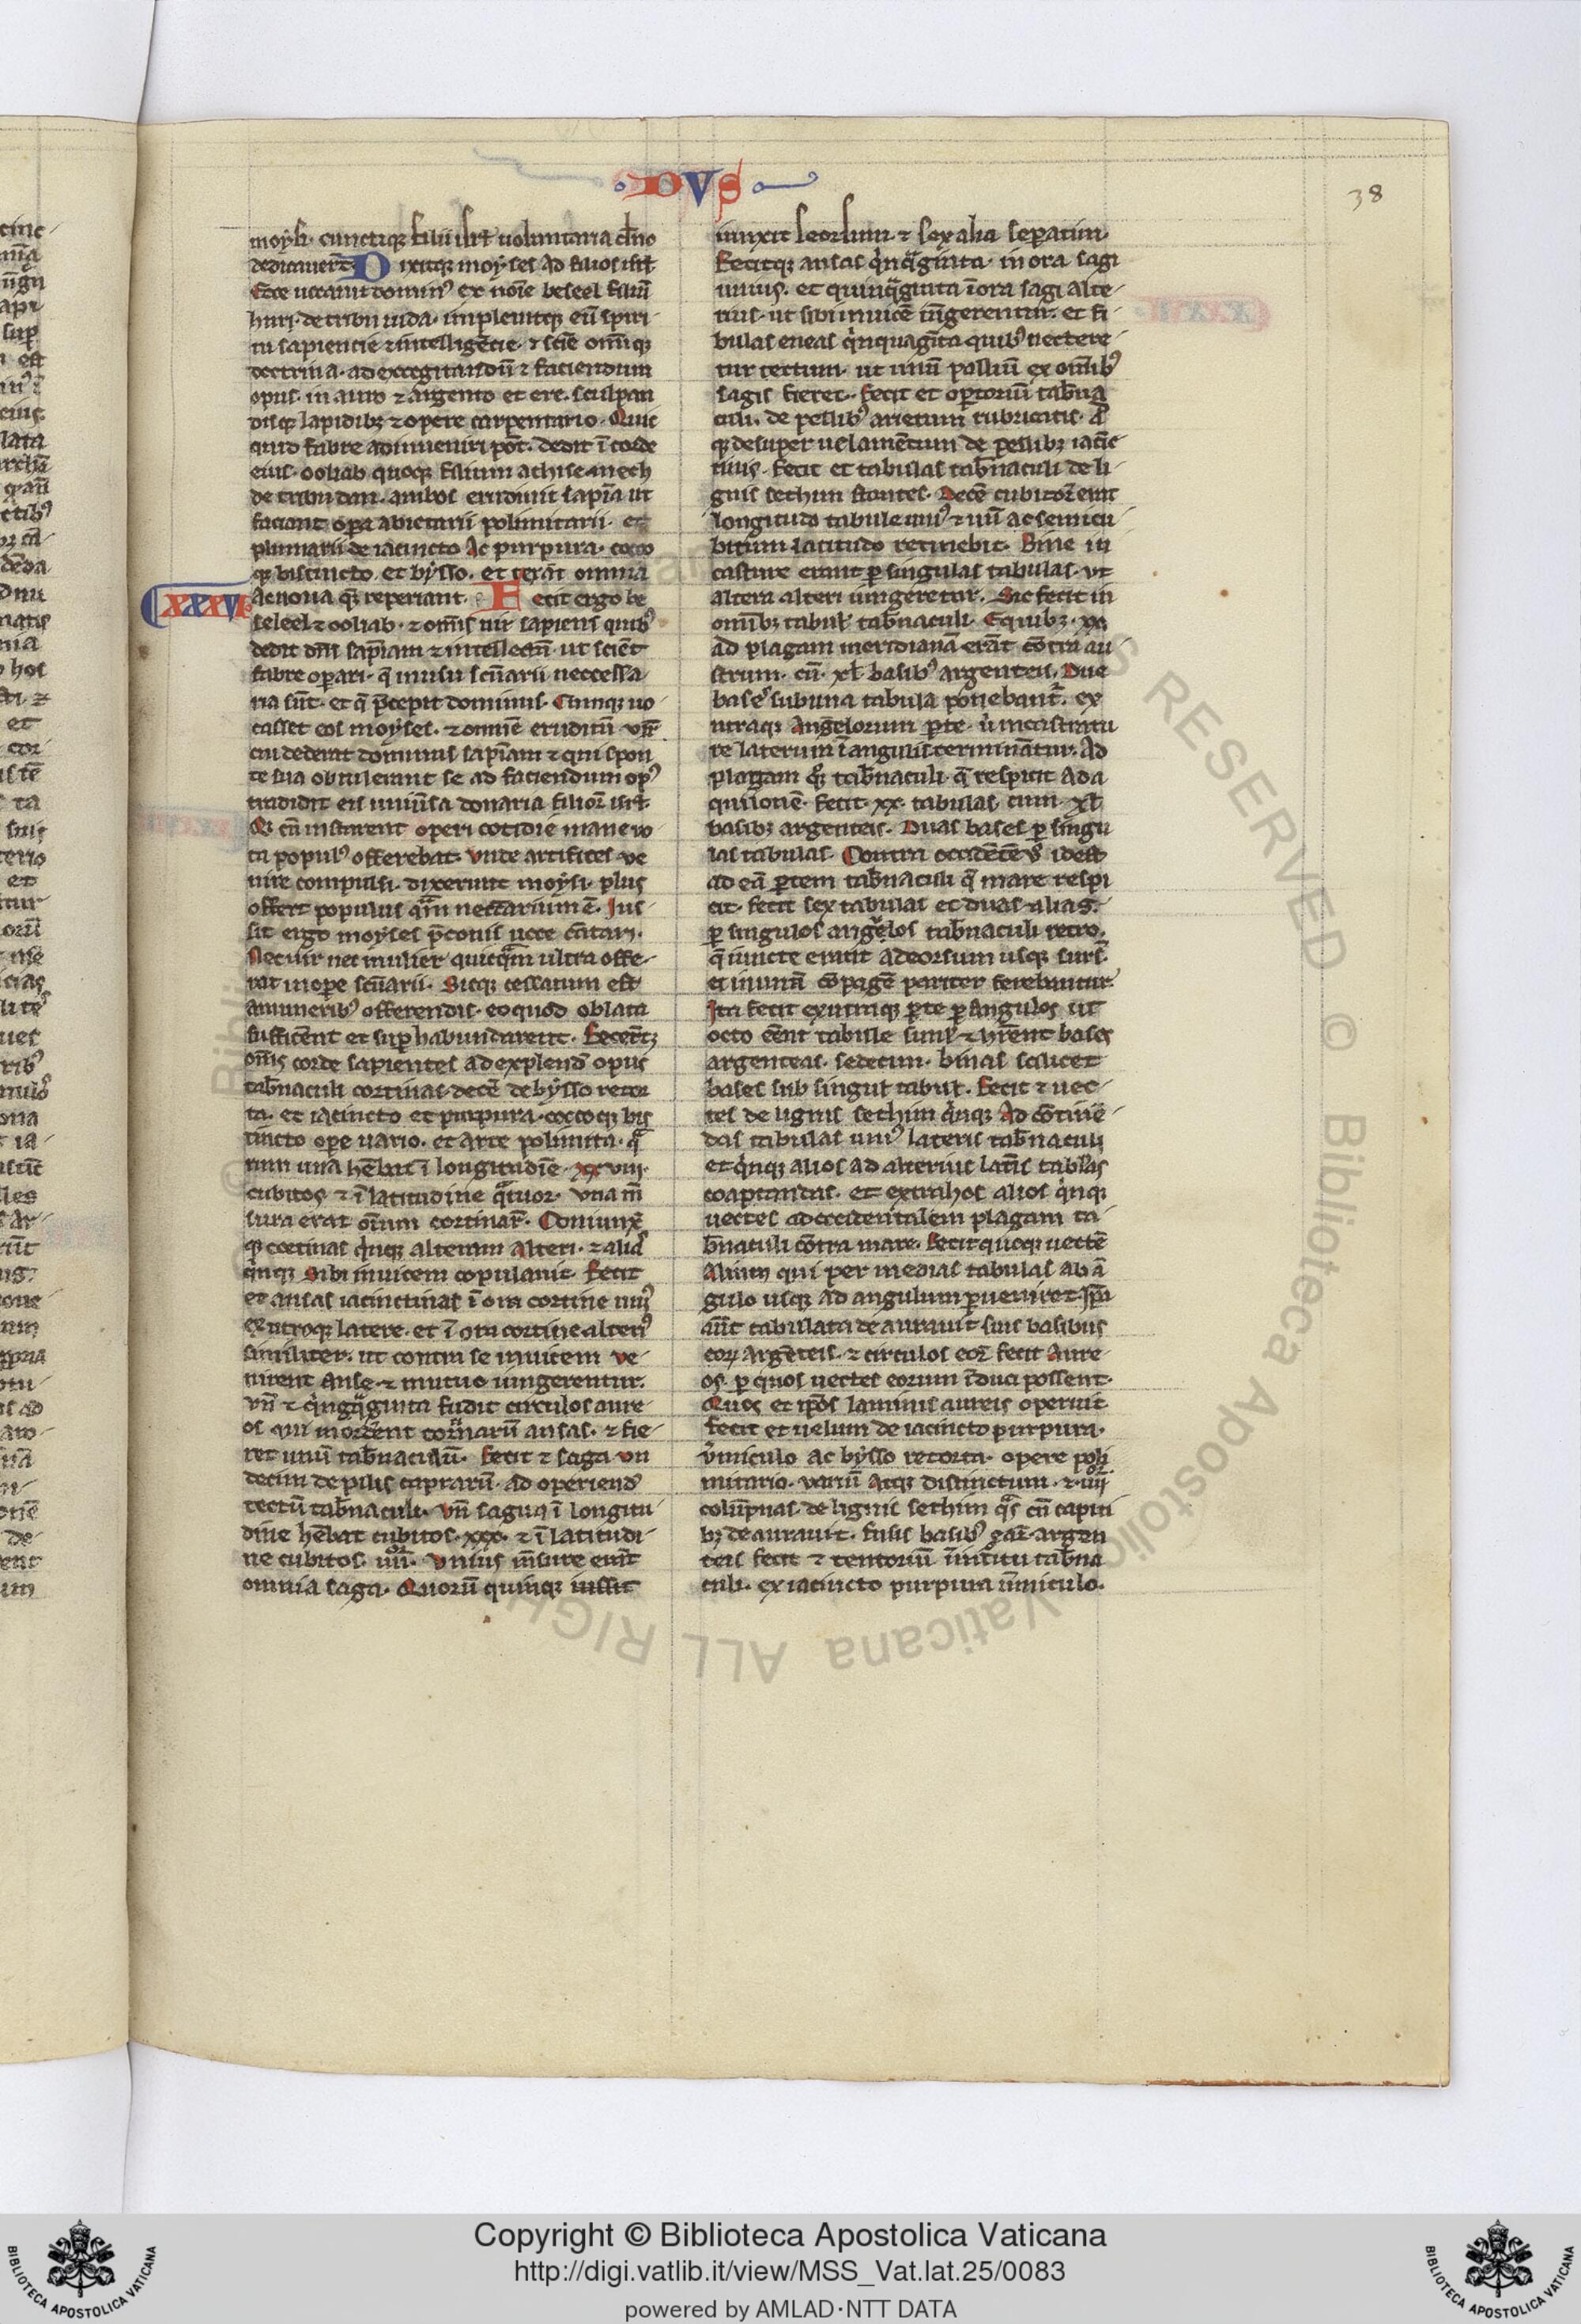 DVS
38
moysi. cunctiqꝫ filii isrł uoluntaria dn̄o
dedicauer̄t. Dixitqꝫ moyses ad filios isrł.
Ecce uocauit dominꝰ ex noīe beseel filiū
huri. de tribu iuda. impleuitqꝫ eū spiri-
tu sapiencie ⁊ intelligēcie. ⁊ scīe om̄iqꝫ
doctrina. ad excogitandū ⁊ faciendum
opus. in auro ⁊ argento et ere. sculpan
disqꝫ lapidibꝫ ⁊ opere carpentario. Quic
quid fabre adinueniri pōt. dedit ī corde
eius. ooliab quoqꝫ filium achisemech
de tribu dan. ambos erudiuit sapīa ut
faciant oꝑa abietarii polimitarii. et
plumarii de iacincto Ac purpura. cocco
qꝫ bistincto. et bysso. et texāt omnia
Ac noua q̄qꝫ reperiant. Fecit ergo be
XXXVI
seleel ⁊ ooliab. ⁊ om̄is uir sapiens quibꝰ
dedit dn̄s sapīam ⁊ intellectū. ut sciēt
fabre oꝑari. q̄ in usu scūarii neccessa-
ria sūt. et q̄ p̄cepit dominus. Cumqꝫ uo
casset eos moyses. ⁊ omnē eruditū vir̄
cui dederat dominus sapīam ⁊ qui spon
te sua obtulerant se ad faciendum opꝰ
tradidit eis uniūsa donaria filioꝝ isrł.
Qͥ cū instarent operi cotidie mane uo
ta populꝰ offerebat. vnde artifices ve
nire compulsi. dixerunt moysi. plus
offert populus qͣm neccariumē. Jus-
sit ergo moyses p̄conis uoce cātari.
Nec uir nec mulier quicqͣm ultra offe-
rat in oꝑe scūarii. Sicqꝫ cessatum est
a muneribꝰ offerendis. eo quod oblata
sufficēnt et suꝑhabundarent. Fecer̄tqꝫ
om̄s corde sapientes ad explend̄ opus
tab̄naculi cortinas decē de bysso retor
ta. et iacincto et purpura. coccoqꝫ bis
tincto oꝑe uario. et arte polimita. qͣ
rum una hēbat ī longitudīe. xxviii.
cubitos ⁊ ī latitudine qͣtuor. vna m̄
sura erat oīum cortinaꝝ. Coniunx̄
qꝫ cortinas qͥnqꝫ alteram alteri. ⁊ aliaˢ
qͥnqꝫ Sibi inuicem copulauit. Fecit
et ansas iacinctinas ī ora cortine uniꝰ
ex utroqꝫ latere. et ī ora cortine alteriꝰ
similiter. ut contra se inuicem ve-
nirent Anse. ⁊ mutuo iungerentur.
vn̄ ⁊ qͥnqͣginta fudit circulos aure-
os qui morderēnt cortinarū ansas. ⁊ fie-
ret unū tab̄naculū. Fecit ⁊ saga vn
decim de pilis caprarū. ad operiend̄
tectū tab̄naculi. vn̄ saguꝫ ī longitu-
dine hēbat cubitos. xxx. ⁊ ī latitudi-
ne cubitos. iiii. vnius m̄sure erāt
omnia saga. Quorū quinqꝫ iussit
iunxit seorsum. ⁊ sex alia separatim.
Fecitqꝫ ansas qͥnqͣginta. in ora sagi
unius. et quinqͣginta īora sagi alte-
rius. ut sibi inuicē iūgerentur. et fi-
bulas eneas qͥnquagīta quibꝰ nectere-
tur tectum. ut unū pallium ex om̄ibꝰ
sagis fieret. Fecit et oꝑtoriū tab̄na
culi. de pellibꝰ arietum rubricatis. Al̄
qꝫ desuper uelamētum de pellibꝫ iacīc-
tinis. Fecit et tabulas tab̄naculi de li-
gnis sethim stantes. Decē cubitoꝝ erat
longitudo tabule uniꝰ ⁊ unū ac semicu-
bitum latitudo retinebit. Bine in
casture erant ꝑ singulas tabulas. vt
altera alteri iungeretur. Sic fecit in
omībꝫ tabul̄ tab̄naculi. Equibꝫ. xx.
ad plagam meridianā erāt cōtra au
strum. cū. xl. basibꝰ argenteis. Due
baseˢ sub una tabula ponebant̄. ex
utraqꝫ Angelorum ꝑte. uͥ incastratu
re laterum ī angulis terminātur. Ad
plagam qͦqꝫ tab̄naculi. q̄ respicit ad a
quilonē. fecit. xx. tabulas. cum. xl.
basibꝫ argenteis. Duas bases ꝑ singu
las tabulas. Contra occidētē vˢ id est
ad eā ꝑtem tab̄naculi q̄ mare respi
cit. fecit sex tabulas et duas alias.
ꝑ singulos angelos tab̄naculi retro.
q̄ iuncte erant adeorsum usqꝫ surs̄.
et in unā cōpagē pariter ferebantur.
Ita fecit ex utraqꝫ ꝑte ꝑ angulos ut
octo eēnt tabulle simł ⁊ hr̄ent bases
argenteas. sedecim. binas scilicet
bases sub singul̄ tabul̄. Fecit ⁊ uec-
tes de lignis sethim qͥnqꝫ Ad cōtinē-
das tabulas uniꝰ lateris tab̄naculi
et qͥnqꝫ alios ad alterius lat̄is tablas
coaptandas. et extra hos alios qͥnqꝫ
uectes ad occidentalem plagam ta-
b̄naculi cōtra mare. Fecit quoqꝫ uectē
Alium qui per medias tabulas ab ā
gulo usqꝫ ad angulum ꝑueniret. Ipsa
aūt tabulata deaurauit suis basibus
eoꝝ Argēteis. ⁊ circulos eoꝝ fecit Aure-
os. ꝑ quos uectes eorum īduci possent.
Quos et ip̄os laminis aureis operuit
fecit et uelum de iacincto purpura.
v̄miculo ac bysso retorta. opere poli
mitario. variū Atqꝫ distinctum. ⁊ iiii
colūpnas. de lignis sethim qͣs cū capiti
bꝫ deaurauit. fusis basibꝰ eaꝝ argen
teis fecit ⁊ tentoriū ī introitu tab̄na
culi. ex iacincto purpura v̄miculo.
Copyright © Biblioteca Apostolica Vaticana
http://digi.vatlib.it/view/MSS_Vat.lat.25/0083
powered by AMLAD·NTT DATA
BIBLIOTECA APOSTOLICA VATICANA
BIBLIOTECA APOSTOLICA VATICANA